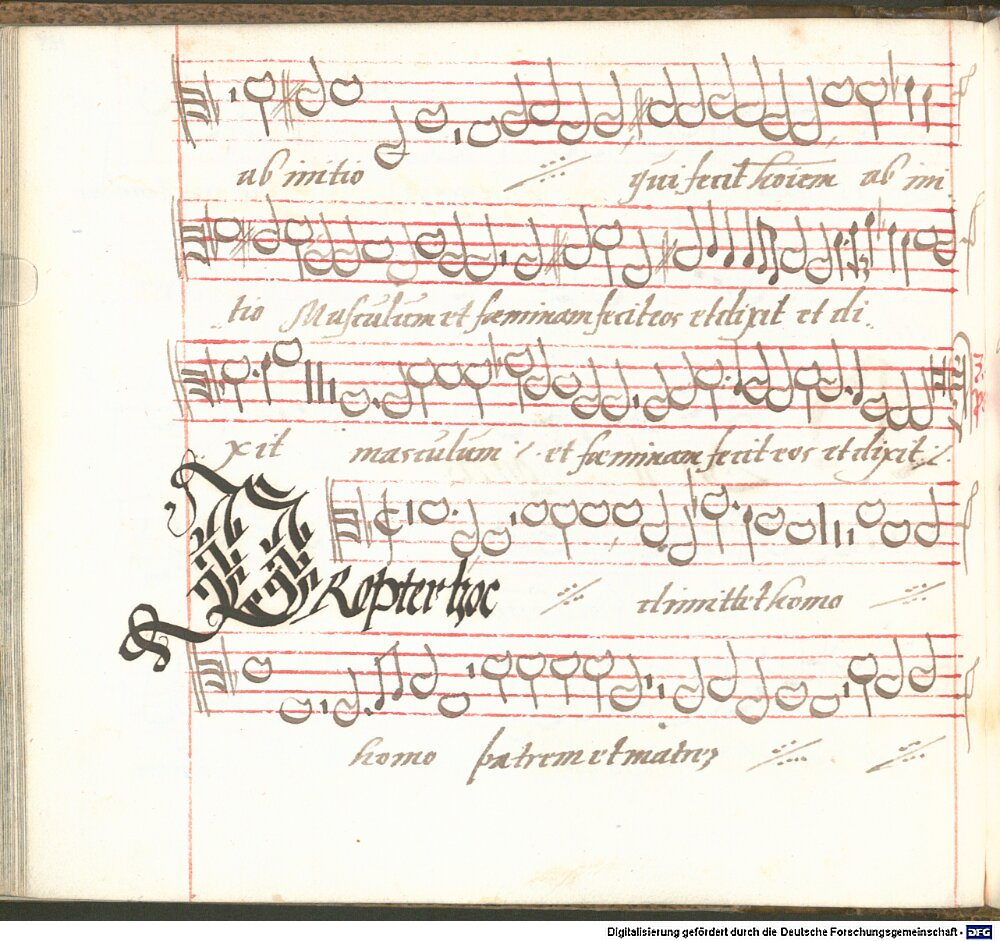 ab initio qui fecit hoiem ab ini
tio Masculum et fæminam fecit eos et dixit et di
xit masculum et fæminam fecit eos et dixit
PRopter hoc dimittet homo
homo patrem et matrē
Digitalisierung gefördert durch die Deutsche Forschungsgemeinschaft - DFG